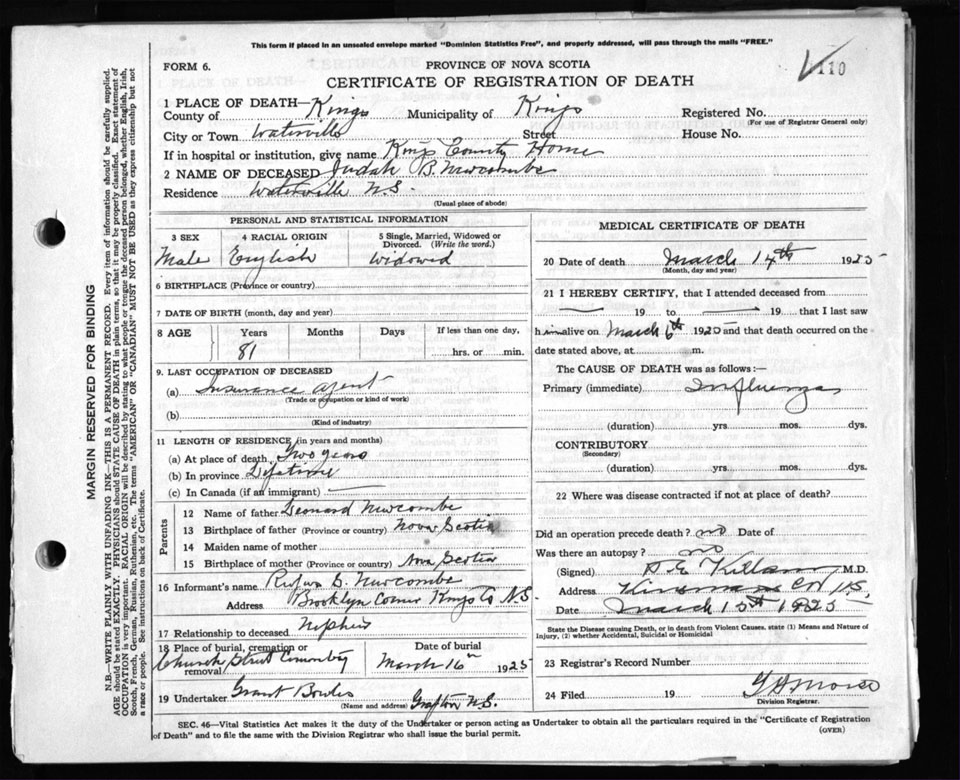 This form if placed in an unsealed envelope marked "Dominion Statistics Free", and properly addressed, will pass through the mails "FREE."
FORM 6.
PROVINCE OF NOVA SCOTIA
CERTIFICATE OF REGISTRATION OF DEATH
110
1 PLACE OF DEATH—
County of Kings Municipality of Kings Registered No.
(For use of Registrar General only)
City or Town Waterville Street House No.
If in hospital or institution, give name Kings County Home
2 NAME OF DECEASED Judah B. Newcombe
Residence Waterville N.S.
(Usual place of abode)
PERSONAL AND STATISTICAL INFORMATION
3 SEX 4 RACIAL ORIGIN 5 Single, Married, Widowed or Divorced. (Write the word.)
Male English Widowed
6 BIRTHPLACE (Province or country)
7 DATE OF BIRTH (month, day and year)
8 AGE Years Months Days If less than one day,
81 hrs. or min.
9. LAST OCCUPATION OF DECEASED
(a) Insurance agent
(Trade or occupation or kind of work)
(b)
(Kind of industry)
11 LENGTH OF RESIDENCE (in years and months)
(a) At place of death Two years
(b) In province Lifetime
(c) In Canada (if an immigrant)
Parents
12 Name of father Leonard Newcombe
13 Birthplace of father (Province or country) Nova Scotia
14 Maiden name of mother
15 Birthplace of mother (Province or country) Nova Scotia
16 Informant's name Rufus D. Newcombe
Address Brooklyn Corner Kings Co N.S.
17 Relationship to deceased Nephew
18 Place of burial, cremation or removal Church Street Cemetery DATE OF BURIAL March 16th 1925
19 Undertaker Grant Bowles
(Name and address) Grafton N.S.
MEDICAL CERTIFICATE OF DEATH
20 Date of death March 14th 1925
(Month, day and year)
21 I HEREBY CERTIFY, that I attended deceased from
19 to 19 that I last saw
h im alive on March 6th 1925 and that death occurred on the
date stated above, at m.
The CAUSE OF DEATH was as follows:—
Primary (immediate) Influenza
(duration) yrs mos. dys.
CONTRIBUTORY
(Secondary)
(duration) yrs. mos. dys.
22 Where was disease contracted if not at place of death?
Did an operation precede death? no Date of
Was there an autopsy? no
(Signed) Killam M.D.
Address Co N.S.
Date March 15th 1925
State the Disease causing Death, or in death from Violent Causes, state (1) Means and Nature of
Injury, (2) whether Accidental, Suicidal or Homicidal
23 Registrar's Record Number
24 Filed 19 Morse
Division Registrar.
SEC. 46—Vital Statistics Act makes it the duty of the Undertaker or person acting as Undertaker to obtain all the particulars required in the "Certificate of Registration
of Death" and to file the same with the Division Registrar who shall issue the burial permit.
(OVER)
MARGIN RESERVED FOR BINDING
N.B.—WRITE PLAINLY WITH UNFADING INK—THIS IS A PERMANENT RECORD. Every item of information should be carefully supplied.
AGE should be stated EXACTLY. PHYSICIANS should STATE CAUSE OF DEATH in plain terms, so that it may be properly classified. Exact statement of
OCCUPATION is very important. RACIAL ORIGIN will be described by stating to what people or tongue the deceased person belonged, whether English, Irish,
Scotch, French, German, Russian, Ruthenian, etc. The terms "AMERICAN" OR "CANADIAN" MUST NOT BE USED as they express citizenship but not
a race or people. See instructions on back of Certificate.